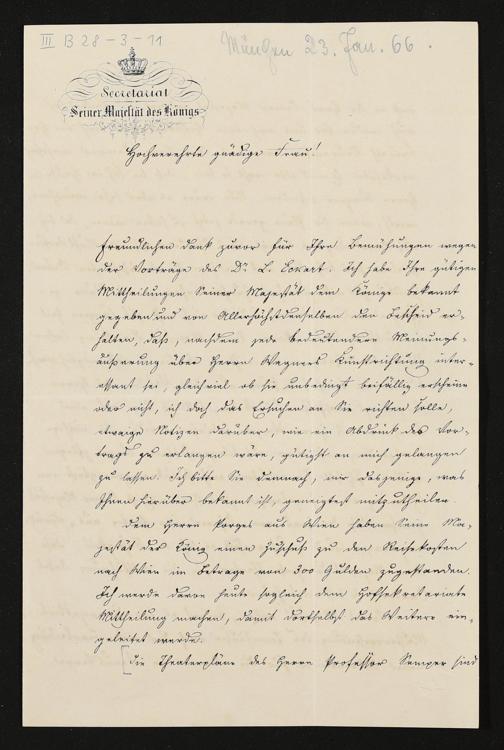 III B 28-3-11
München 23. Jan. 66.
Secretariat
Seiner Majestät des Königs
Hochverehrte gnädige Frau!
Freundlichen Dank zuvor für Ihre Bemühungen wegen
der Vorträge des Dr. L. Eckart. Ich habe Ihre gütigen
Mittheilungen Seiner Majestät dem Könige bekannt
gegeben und von Allerhöchstdenselben den Bescheid er-
halten, daß, nachdem jede bedeutendere Meinungs-
äußerung über Herrn Wagners Kunstrichtung inter-
essant sei, gleichviel ob sie unbedingt beifällig erscheine
oder nicht, ich doch das Ersuchen an Sie richten solle,
etwaige Notizen darüber, wie ein Abdruck des Vor-
trags zu erlangen wäre, gütigst an mich gelangen
zu lassen. Ich bitte Sie demnach, mir dasjenige, was
Ihnen hierüber bekannt ist, geneigtest mitzutheilen.
Dem Herrn Porges aus Wien haben Seine Ma-
jestät der König einen Zuschuß zu den Reisekosten
nach Wien im Betrage von 300 Gulden zugestanden.
Ich werde davon heute sogleich dem Hofsekretariate
Mittheilung machen, damit dortselbst das Weitere ein-
geleitet werde.
[Die Theaterpläne des Herrn Professor Semper sind